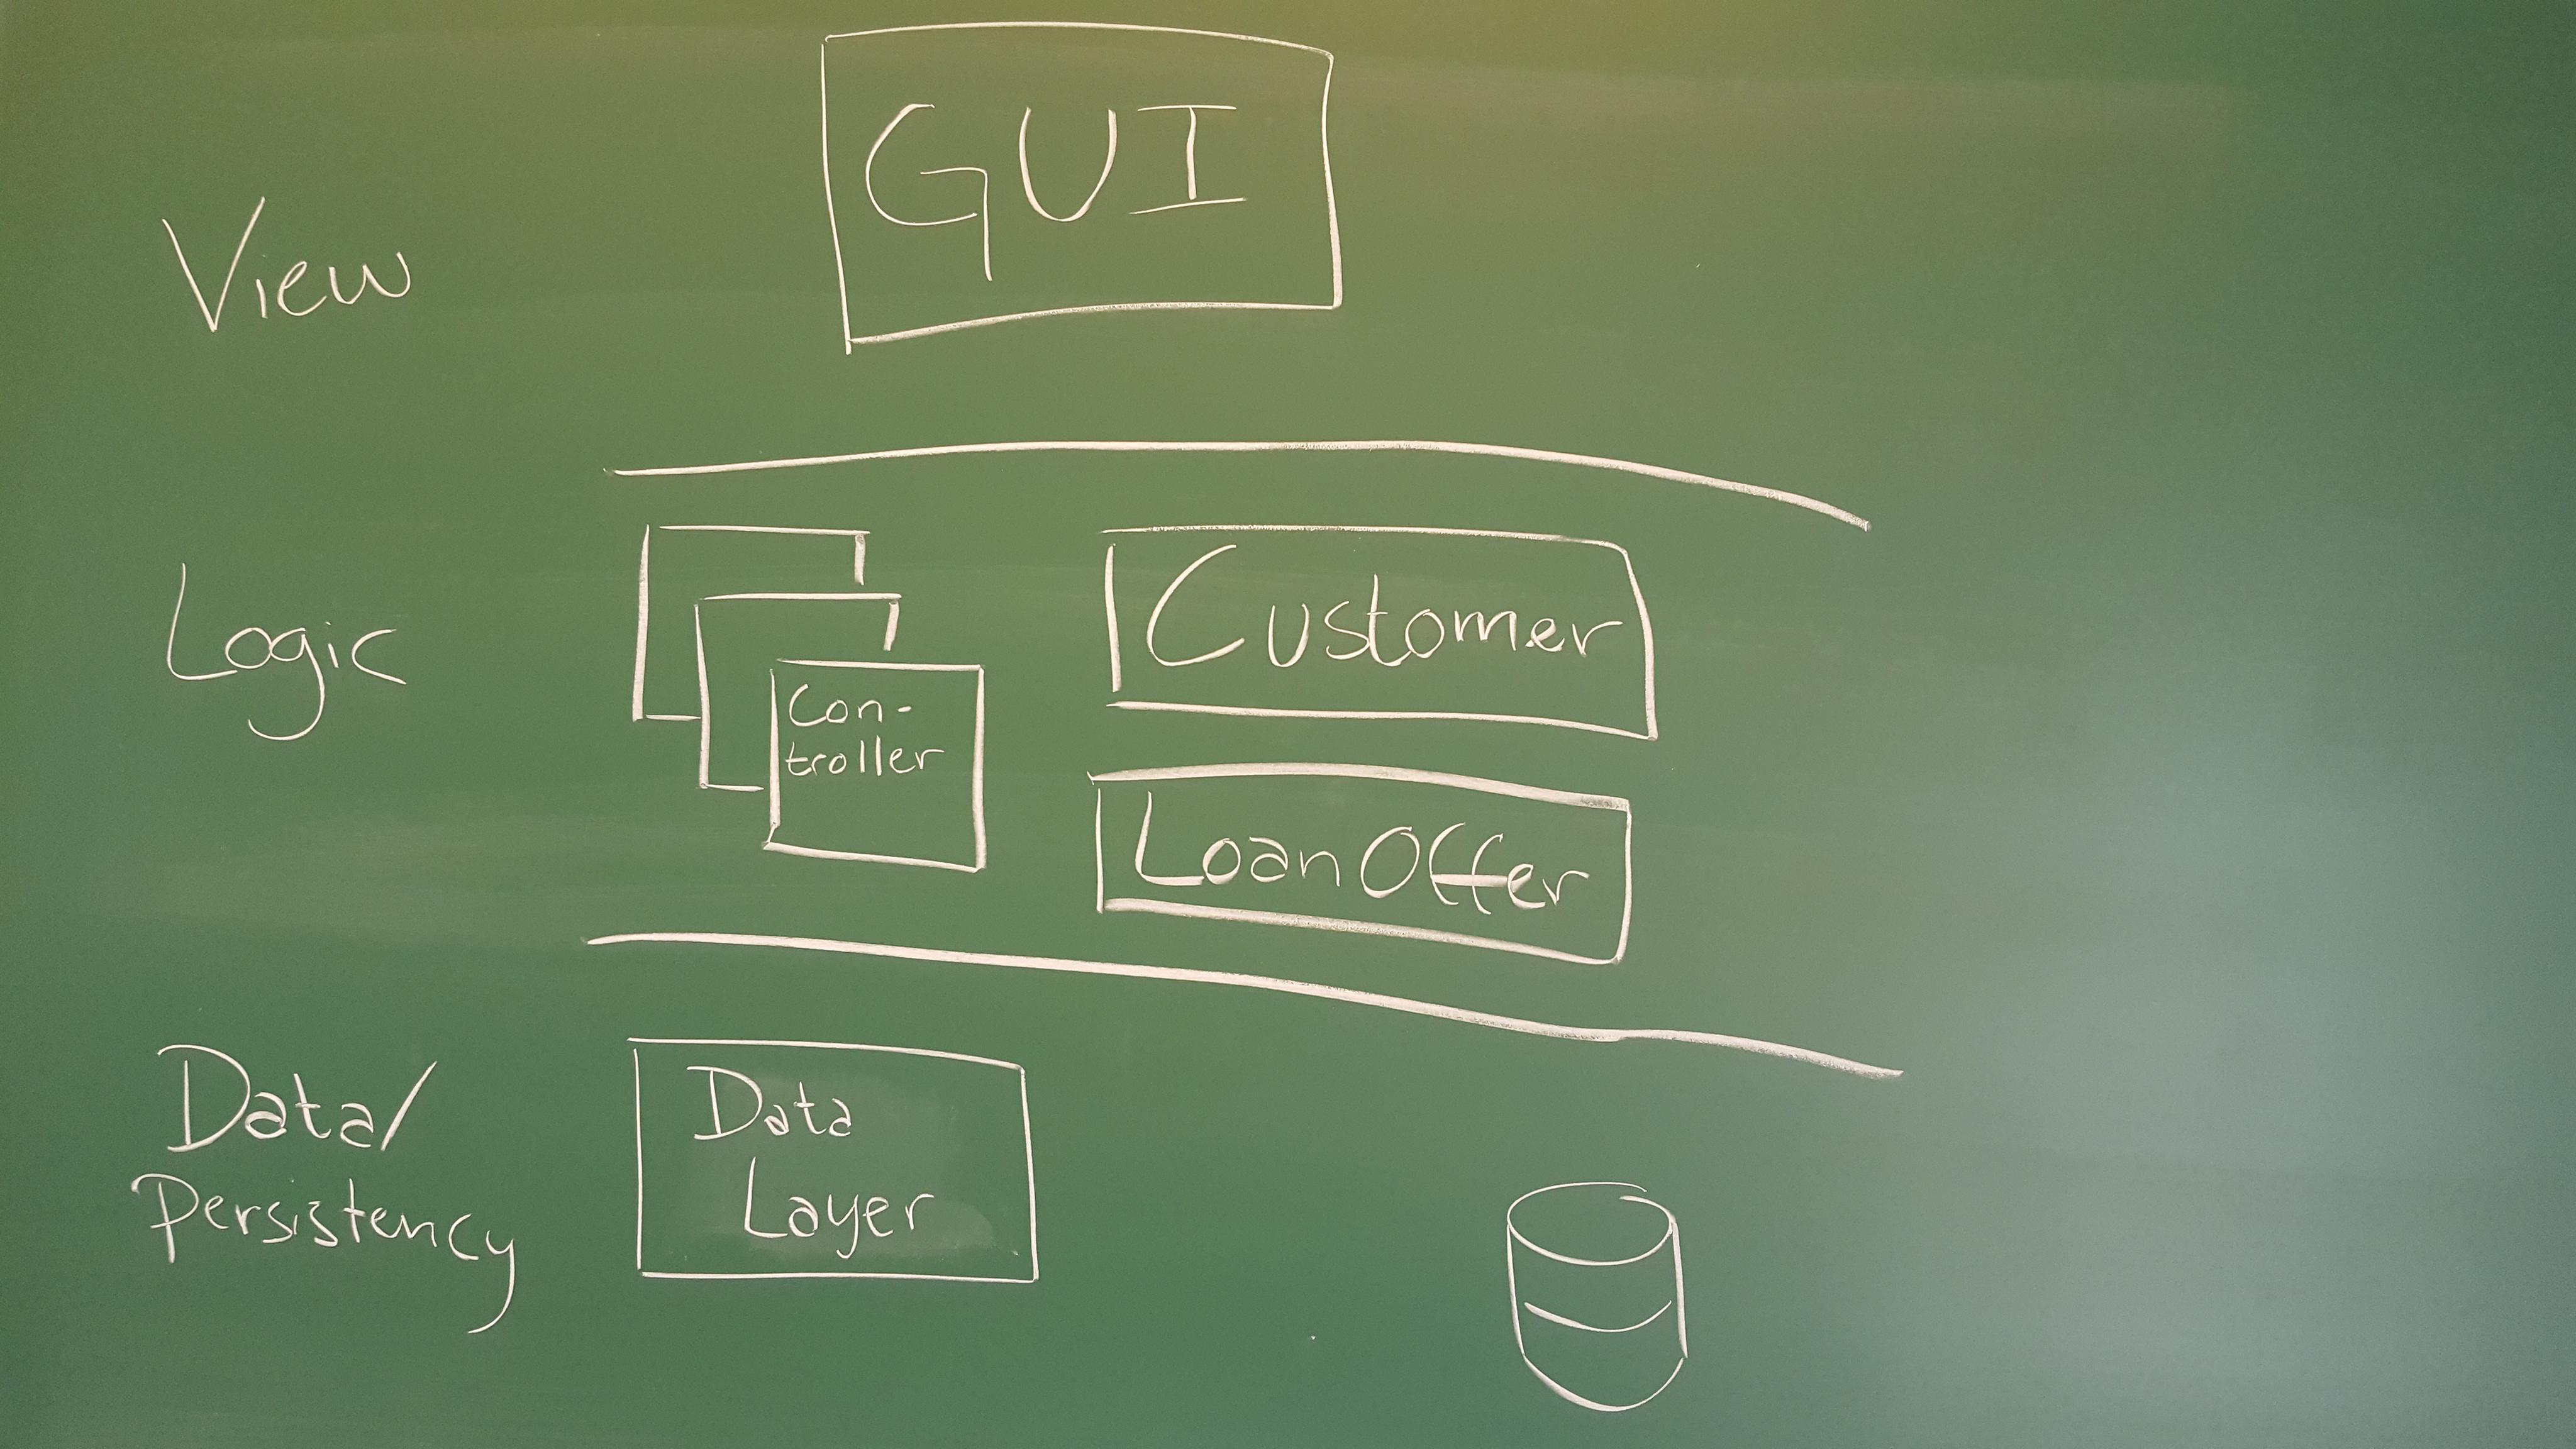 GUI
View
Logic
Con-
troller
Customer
LoanOffer
Data/
Persistency
Data
Layer